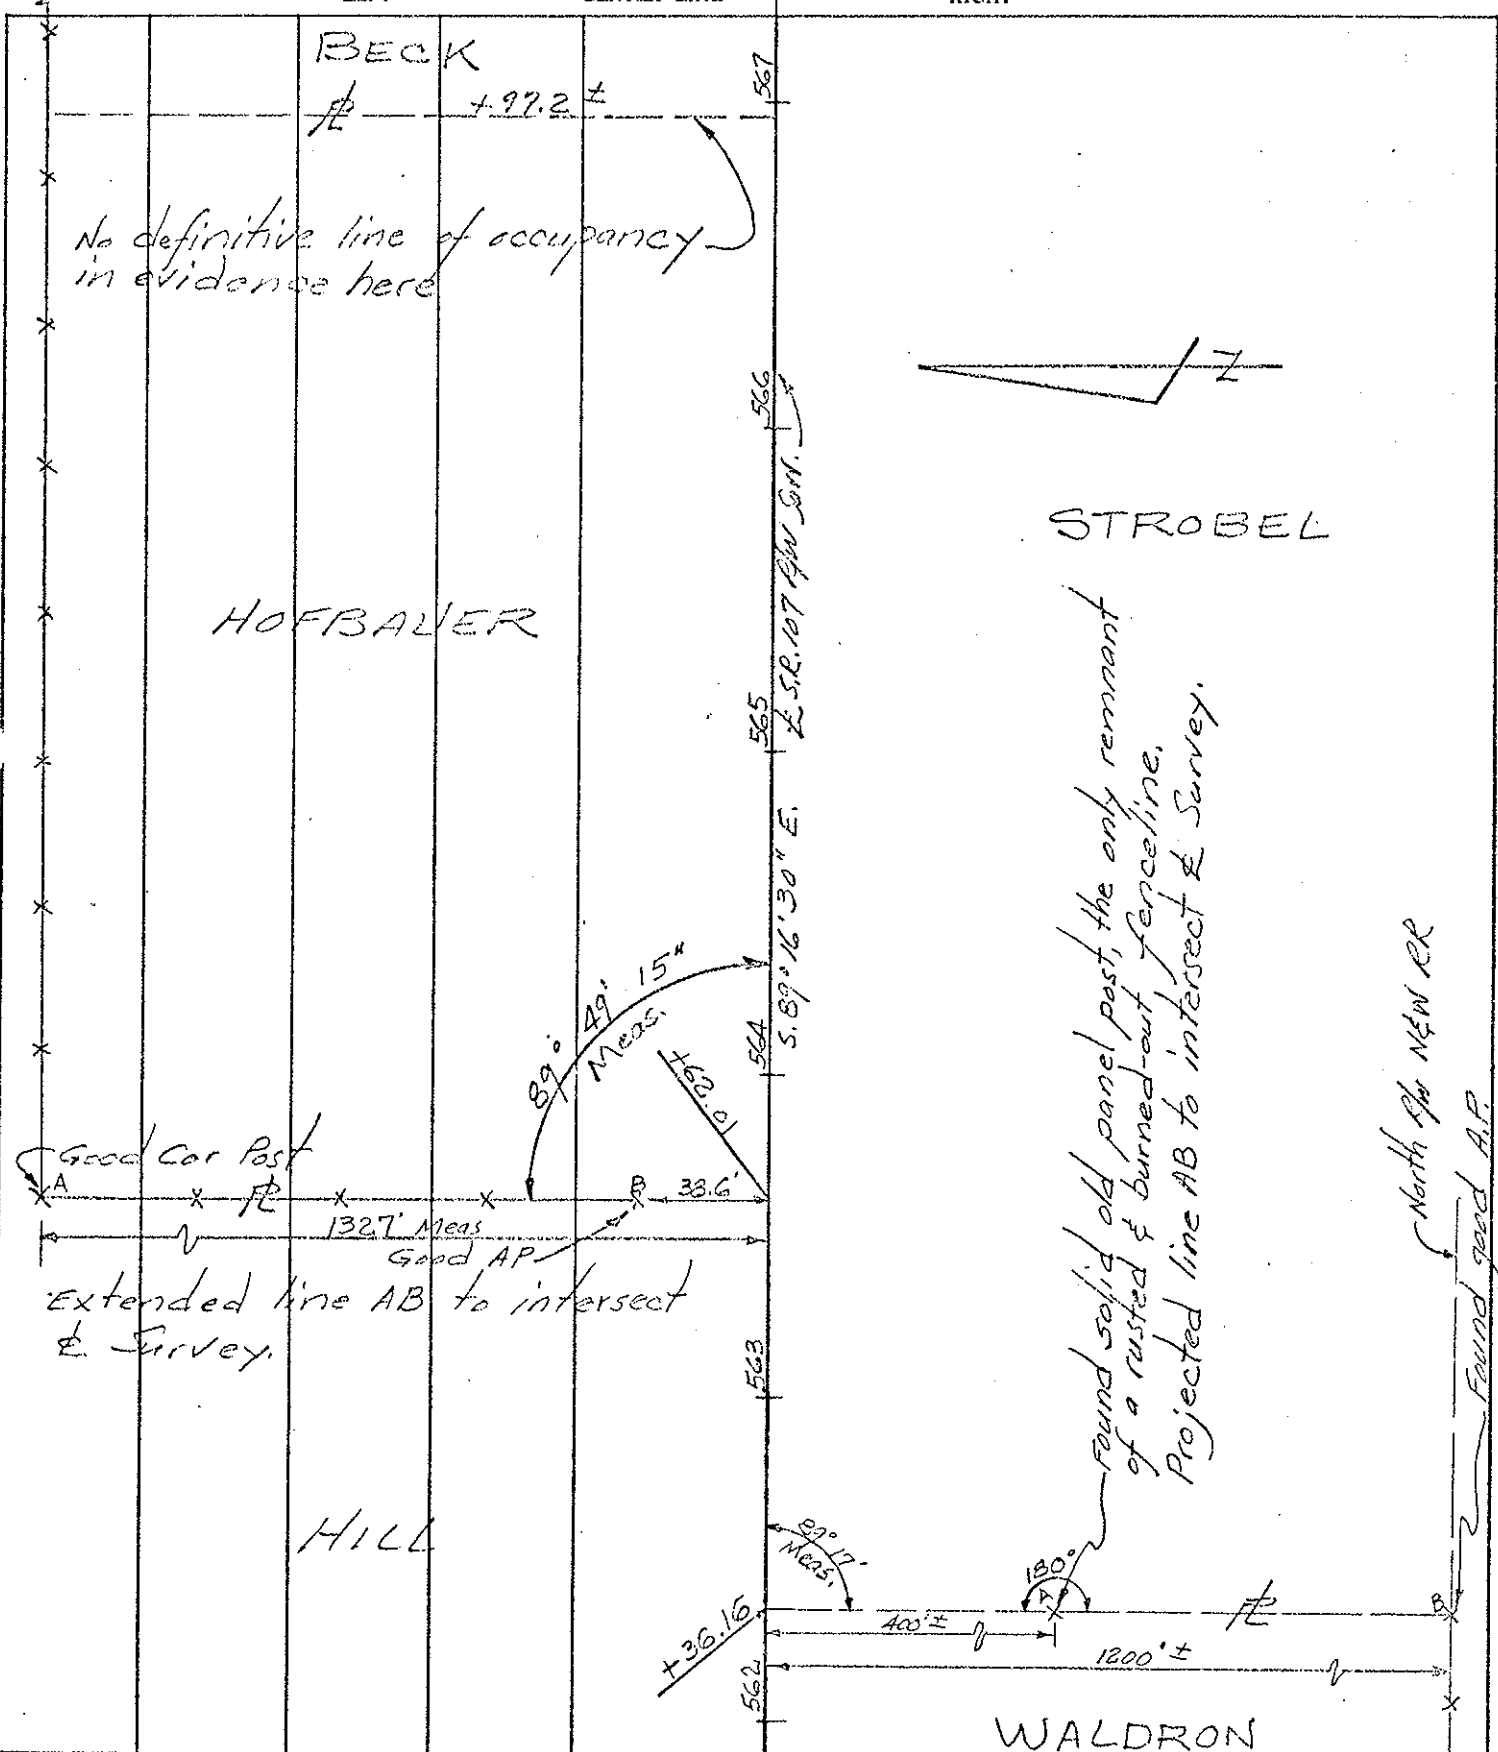 BECK
567
+97.2 ±
No definitive line of occupancy
in evidence here
566
℄ S.R. 107 R/W Sur.
STROBEL
HOFBAUER
565
S. 89° 16' 30" E.
89° 49' 15"
Meas.
564
+62.0
Good Cor Post
A
B
38.6'
1327' Meas
Good AP
Extended line AB to intersect
℄ Survey.
563
HILL
Found solid old panel post, the only remnant
of a rusted & burned-out fenceline.
Projected line AB to intersect ℄ Survey.
North R/W N&W RR
Found good A.P.
89° 17'
Meas.
180°
A
B
400' ±
1200' ±
+36.16
562
WALDRON